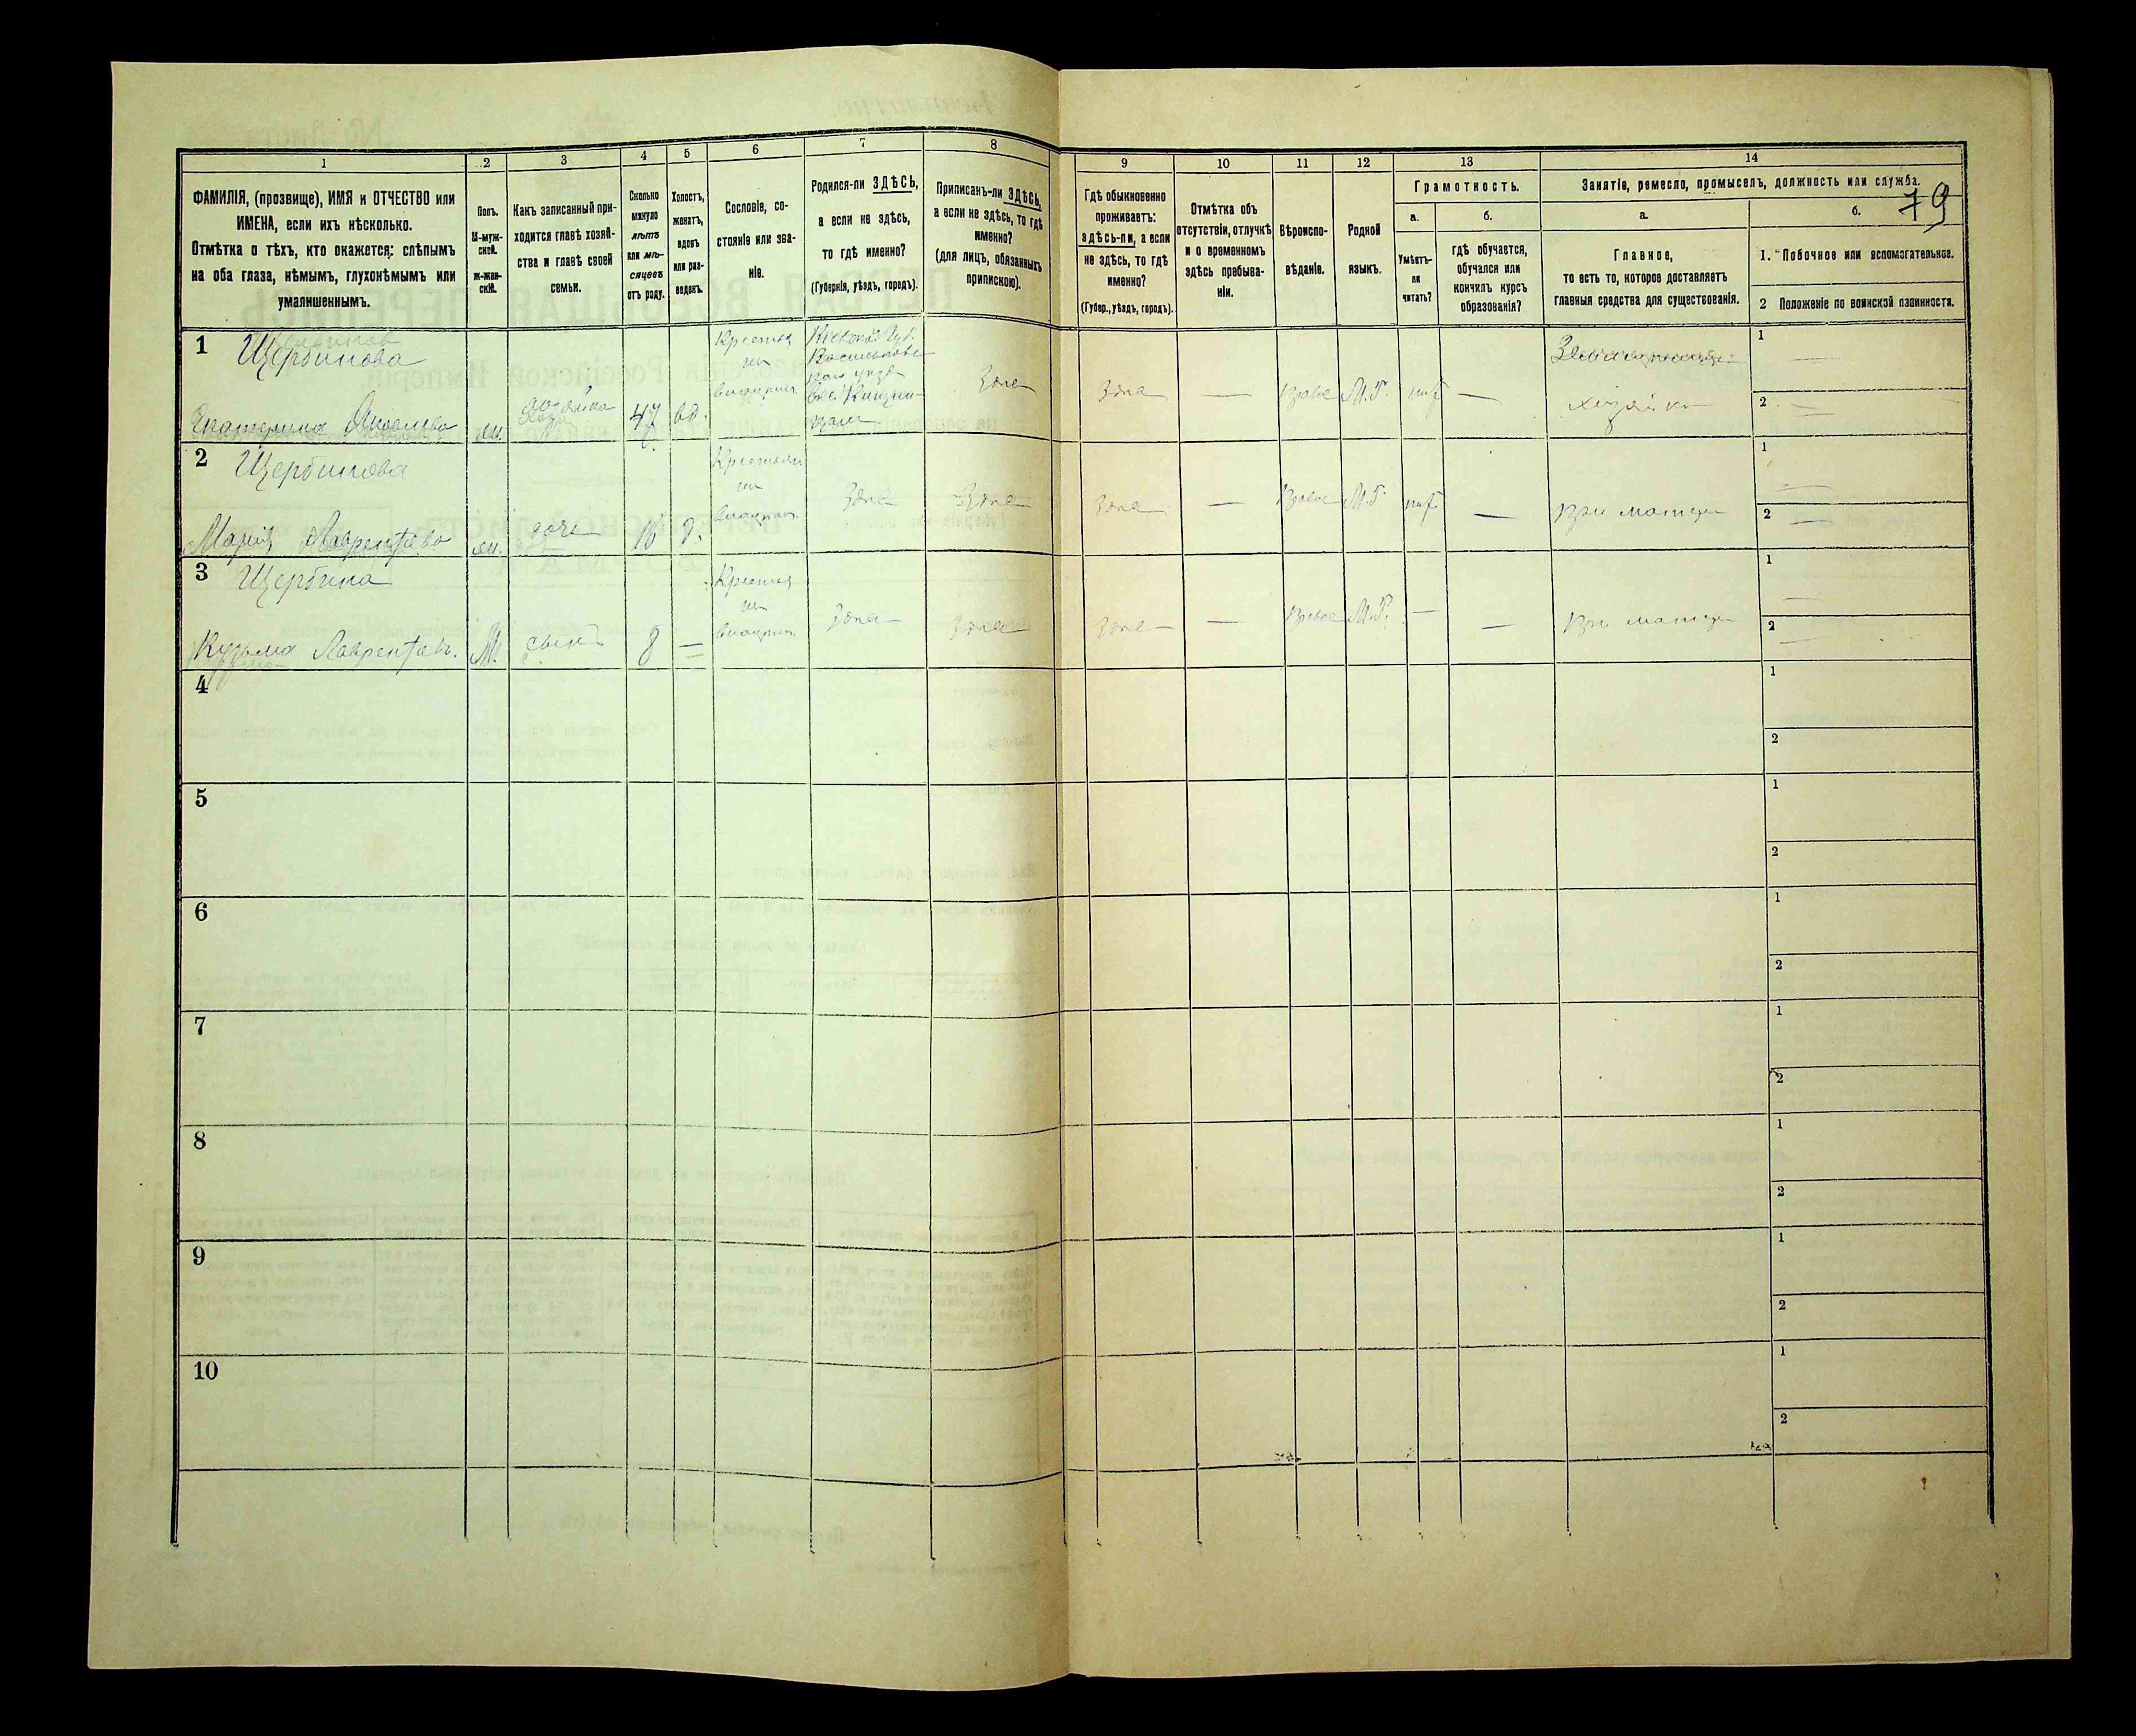 79
1 2 3 4 5 6 7 8 9 10 11 12 13 14
ФАМИЛІЯ, (прозвище), ИМЯ и ОТЧЕСТВО или
ИМЕНА, если ихъ нѣсколько.
Отмѣтка о тѣхъ, кто окажется: слѣпымъ
на оба глаза, нѣмымъ, глухонѣмымъ или
умалишеннымъ.
Полъ.
М-муж-
ской.
ж-жен-
скій.
Какъ записанный при-
ходится главѣ хозяй-
ства и главѣ своей
семьи.
Сколько
минуло
лѣтъ
или мѣ-
сяцевъ
отъ роду.
Холостъ,
женатъ,
вдовъ
или раз-
веденъ.
Сословіе, со-
стояніе или зва-
ніе.
Родился-ли ЗДѢСЬ,
а если не здѣсь,
то гдѣ именно?
(Губернія, уѣздъ, городъ).
Приписанъ-ли ЗДѢСЬ,
а если не здѣсь, то гдѣ
именно?
(для лицъ, обязанныхъ
припискою).
Гдѣ обыкновенно
проживаетъ:
здѣсь-ли, а если
не здѣсь, то гдѣ
именно?
(Губер., уѣздъ, городъ).
Отмѣтка объ
отсутствіи, отлучкѣ
и о временномъ
здѣсь пребыва-
ніи.
Вѣроиспо-
вѣданіе.
Родной
языкъ.
Грамотность.
а.
Умѣетъ-
ли
читать?
б.
гдѣ обучается,
обучался или
кончилъ курсъ
образованія?
Занятіе, ремесло, промыселъ, должность или служба.
а.
Главное,
то есть то, которое доставляетъ
главныя средства для существованія.
б.
1. Побочное или вспомогательное.
2 Положеніе по воинской повинности.
1 Щербинова
Екатерина Яковлева
ж.
хозяйка
47
вд.
Крестья
Кіевской Губ.
Васильковс
Здесь
Здесь
—
Право
М.Р.
нѣт
—
хозяйка
1 —
2 —
2 Щербинова
Марія Лаврентьева
ж.
дочь
16
д.
Крестьян
Здесь
Здесь
Здесь
—
Право
М.Р.
нѣт
—
При матери
1 —
2 —
3 Щербина
Кузьма Лаврентьев.
М.
сынъ
8
—
Крестья
Здесь
Здесь
Здесь
—
Право
М.Р.
—
—
При матери
1 —
2 —
4
1
2
5
1
2
6
1
2
7
1
2
8
1
2
9
1
2
10
1
2